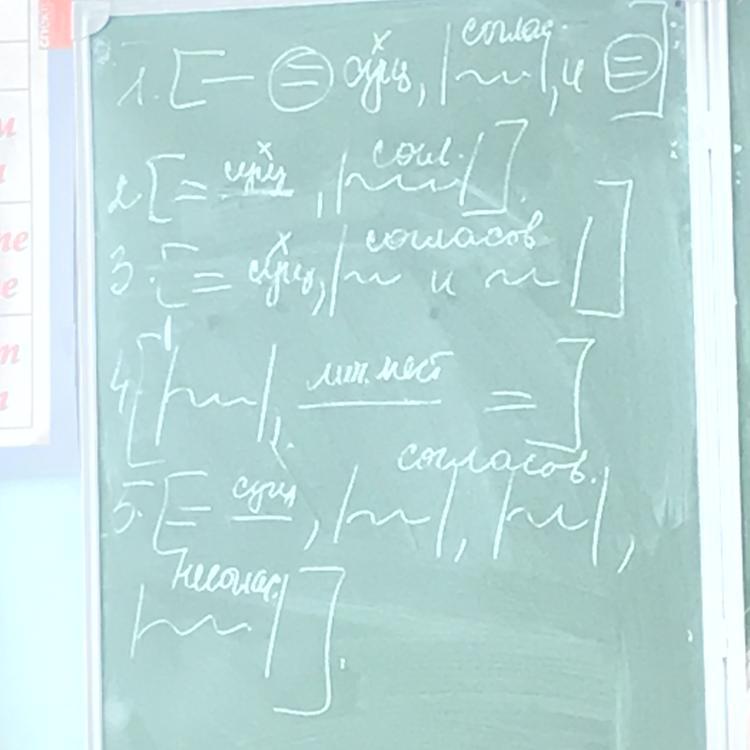 соглас.
1. [— (=) сущ, |~~|, и (=)].
х
сущ
согл.
2 [= , |~~|].
х
согласов
3. [= сущ, |~ и ~|]
4 [|~~|, лич. мест =]
согласов.
5. [= сущ, |~~|, |~~|,
несоглас.
|~~|].